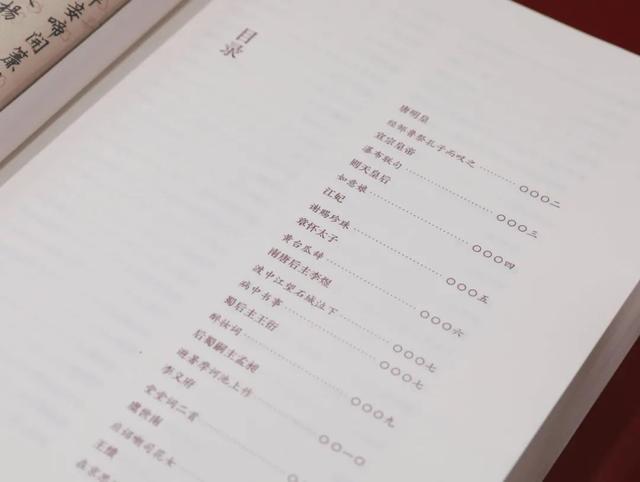 妾啼
楊閒簾
目录
唐明皇
经邹鲁祭孔子而叹之 〇〇〇二
宣宗皇帝
瀑布联句 〇〇〇三
则天皇后
如意娘 〇〇〇四
江妃
谢赐珍珠 〇〇〇五
章怀太子
黄台瓜辞 〇〇〇六
南唐后主李煜
渡中江望石城泣下 〇〇〇七
病中书事 〇〇〇七
蜀后主王衍
醉妆词 〇〇〇九
后蜀嗣主孟昶
避暑摩诃池上作 〇〇一〇
李义府
堂堂词二首
虞世南
应诏嘲司花女
王绩
在京思